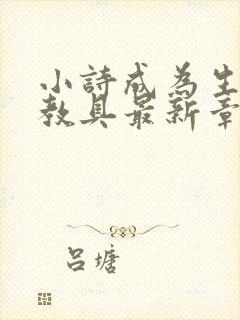 小詩成為生
教具最新章
呂塘